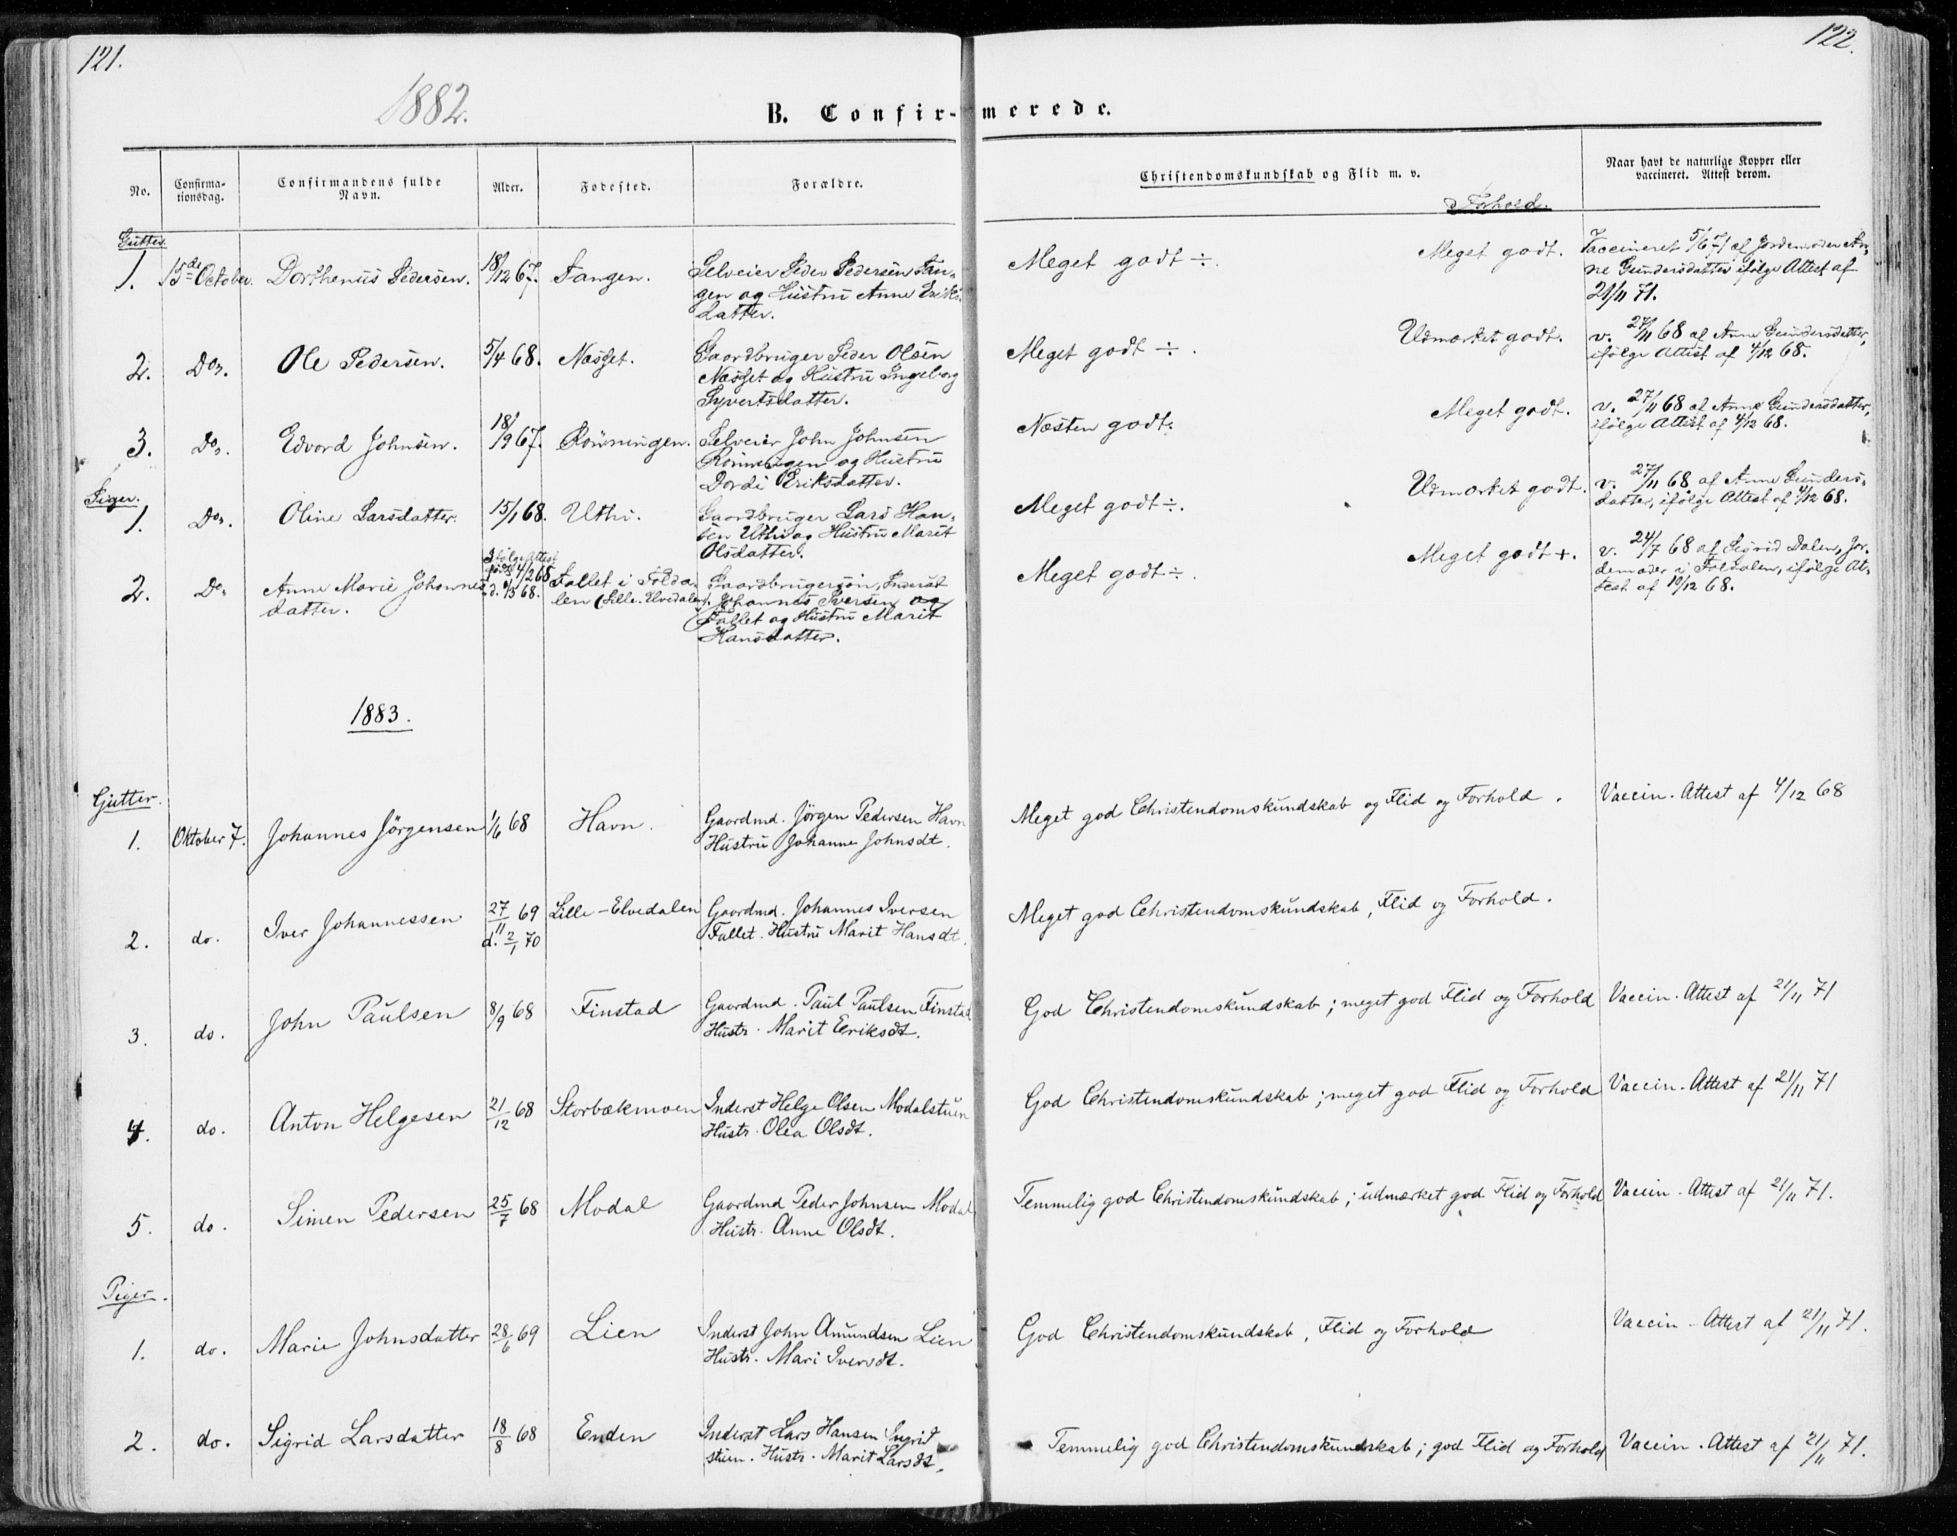 121.
122.
1882.
B. Confirmerede.
No.
Confirmationsdag.
Confirmandens fulde Navn.
Alder.
Fødested.
Forældre.
Christendomskundskab og Flid m. v.
Forhold.
Naar havt de naturlige Kopper eller vaccineret. Attest derom.
Gutter.
1. 15de October. Dorthenus Pedersen. 18/12 67. Tangen. Selveier Peder Pedersen Tan-
gen og Hustru Anne Eriks-
datter.
Meget godt ÷. Meget godt. Vaccineret 5/6 71 af Jordemoder An-
ne Gundersdatter ifølge Attest af
21/11 71.
2. Do. Ole Pedersen. 5/4 68. Næsset. Gaardbruger Peder Olsen
Næsset og Hustru Ingeborg
Syvertsdatter.
Meget godt ÷. Udmærket godt. v. 27/11 68 af Anne Gundersdatter,
ifølge Attest af 4/12 68.
3. Do. Edvard Johnsen. 18/9 67. Rønningen. Selveier John Johnsen
Rønningen og Hustru
Dordi Eriksdatter.
Næsten godt. Meget godt. v. 27/11 68 af Anne Gundersdatter,
ifølge Attest af 4/12 68.
Piger.
1. Do. Oline Larsdatter. 15/1 68. Uthi. Gaardbruger Lars Han-
sen Uthi og Hustru Marit
Olsdatter.
Meget godt ÷. Udmærket godt. v. 27/11 68 af Anne Gunders-
datter, ifølge Attest af 4/12 68.
2. Do. Anne Marie Johannes-
datter.
Ifølge Attest
født 4/2 68
d. 1/3 68.
Fallet i Folda-
len (Lille-Elvedalen).
Gaardbrugersøn, Inderst
Johannes Iversen og
Fallet og Hustru Marit
Hansdatter.
Meget godt ÷. Meget godt +. v. 24/7 68 af Sigrid Dalen, Jor-
demoder i Foldalen, ifølge At-
test af 10/12 68.
1883.
Gutter.
1. Oktober 7. Johannes Jörgensen 1/6 68 Havn. Gaardmd. Jörgen Pedersen Havn
Hustru Johanne Johnsdt.
Meget god Christendomskundskab og Flid og Forhold. Vaccin. Attest af 4/12 68
2. do. Iver Johannessen 27/11 69
d. 2/1 70
Lille-Elvedalen Gaardmd. Johannes Iversen
Fallet. Hustru Marit Hansdt.
Meget god Christendomskundskab, Flid og Forhold.
3. do. John Paulsen 8/9 68 Finstad Gaardmd. Paul Paulsen Finstad
Hustr. Marit Eriksdt.
God Christendomskundskab; meget god Flid og Forhold Vaccin. Attest af 21/11 71
4. do. Anton Helgesen 21/12 68 Storbækmoen Inderst Helge Olsen Modalstuen
Hustr. Olea Olsdt.
God Christendomskundskab; meget god Flid og Forhold Vaccin. Attest af 21/11 71
5. do. Simen Pedersen 25/7 68 Modal Gaardmd Peder Johnsen Modal
Hustr. Anne Olsdt.
Temmelig god Christendomskundskab; udmærket god Flid og Forhold Vaccin. Attest af 21/11 71.
Piger.
1. do. Marie Johnsdatter 28/6 69 Lien Inderst John Amundsen Lien
Hustr. Mari Iversdt.
God Christendomskundskab, Flid og Forhold Vaccin. Attest af 21/11 71.
2. do. Sigrid Larsdatter 18/8 68 Enden Inderst Lars Hansen Ingrid
stuen. Hustr. Marit Larsdt.
Temmelig god Christendomskundskab; god Flid og Forhold Vaccin. Attest af 21/11 71.